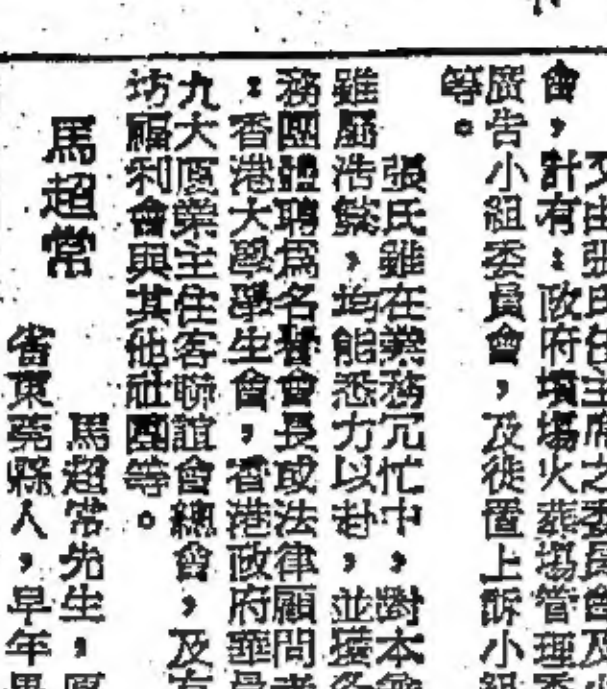 又由張氏任主席之委員會及小
會，計有：政府墳場火葬場管理委
廣告小組委員會，及徙置上訴小組
等。
張氏雖在業務冗忙中，對本
雖屬浩繁，均能悉力以赴，並獲各
務團體聘爲名譽會長或法律顧問者
：香港大學學生會，香港政府華員
九大厦業主住客聯誼會總會，及
坊福利會與其他社團等。
馬超常
馬超常先生，原
省東莞縣人，早年畢